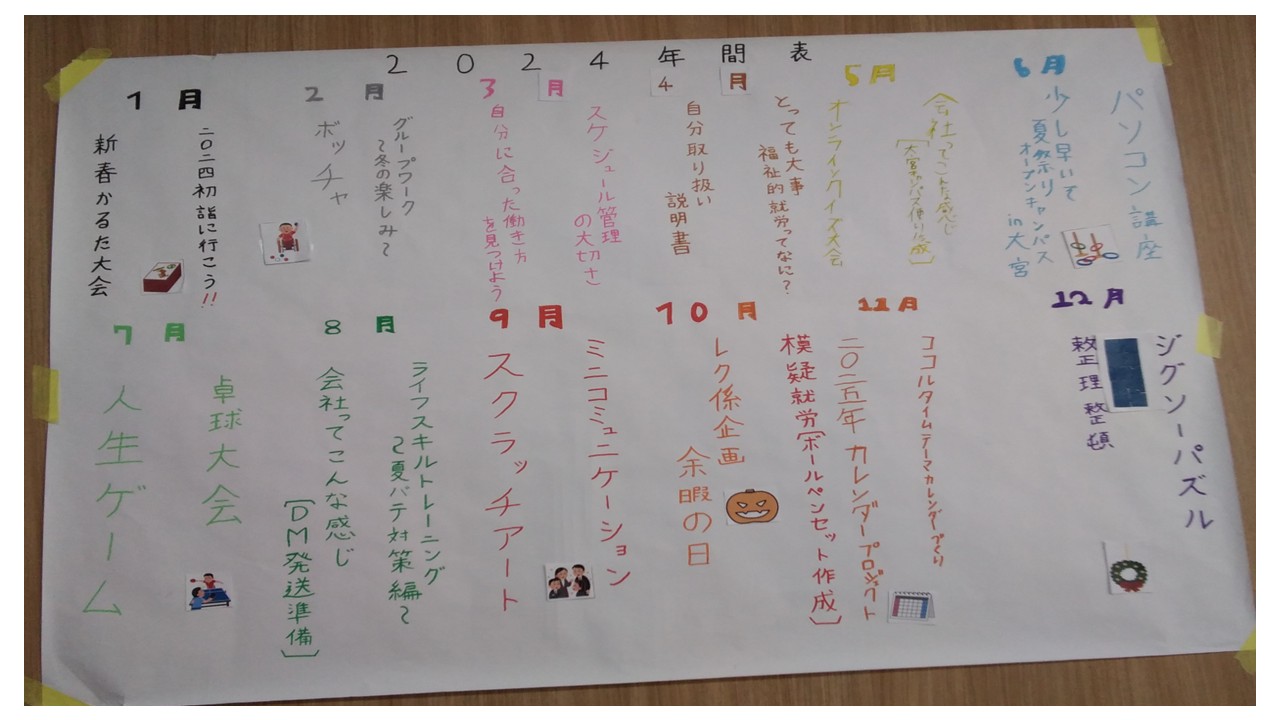 2024年間表
1月
二〇二四初詣に行こう!!
新春かるた大会
2月
グループワーク
~冬の楽しみ~
ボッチャ
3月
スケジュール管理
の大切さ
自分に合った働き方
を見つけよう
4月
とっても大事
福祉的就労ってなに?
自分取り扱い
説明書
5月
会社ってこんな感じ
オンラインクイズ大会
6月
パソコン講座
少し早いて
夏祭り
オープンキャンパス
in大宮
7月
卓球大会
人生ゲーム
8月
ライフスキルトレーニング
~夏バテ対策編~
会社ってこんな感じ
[DM発送準備]
9月
ミニコミュニケーション
スクラッチアート
10月
レク係企画
余暇の日
11月
ココルタイムテーマカレンダーづくり
二〇二五年カレンダープロジェクト
模擬就労[ボールペンセット作成]
12月
ジグソーパズル
整理整頓